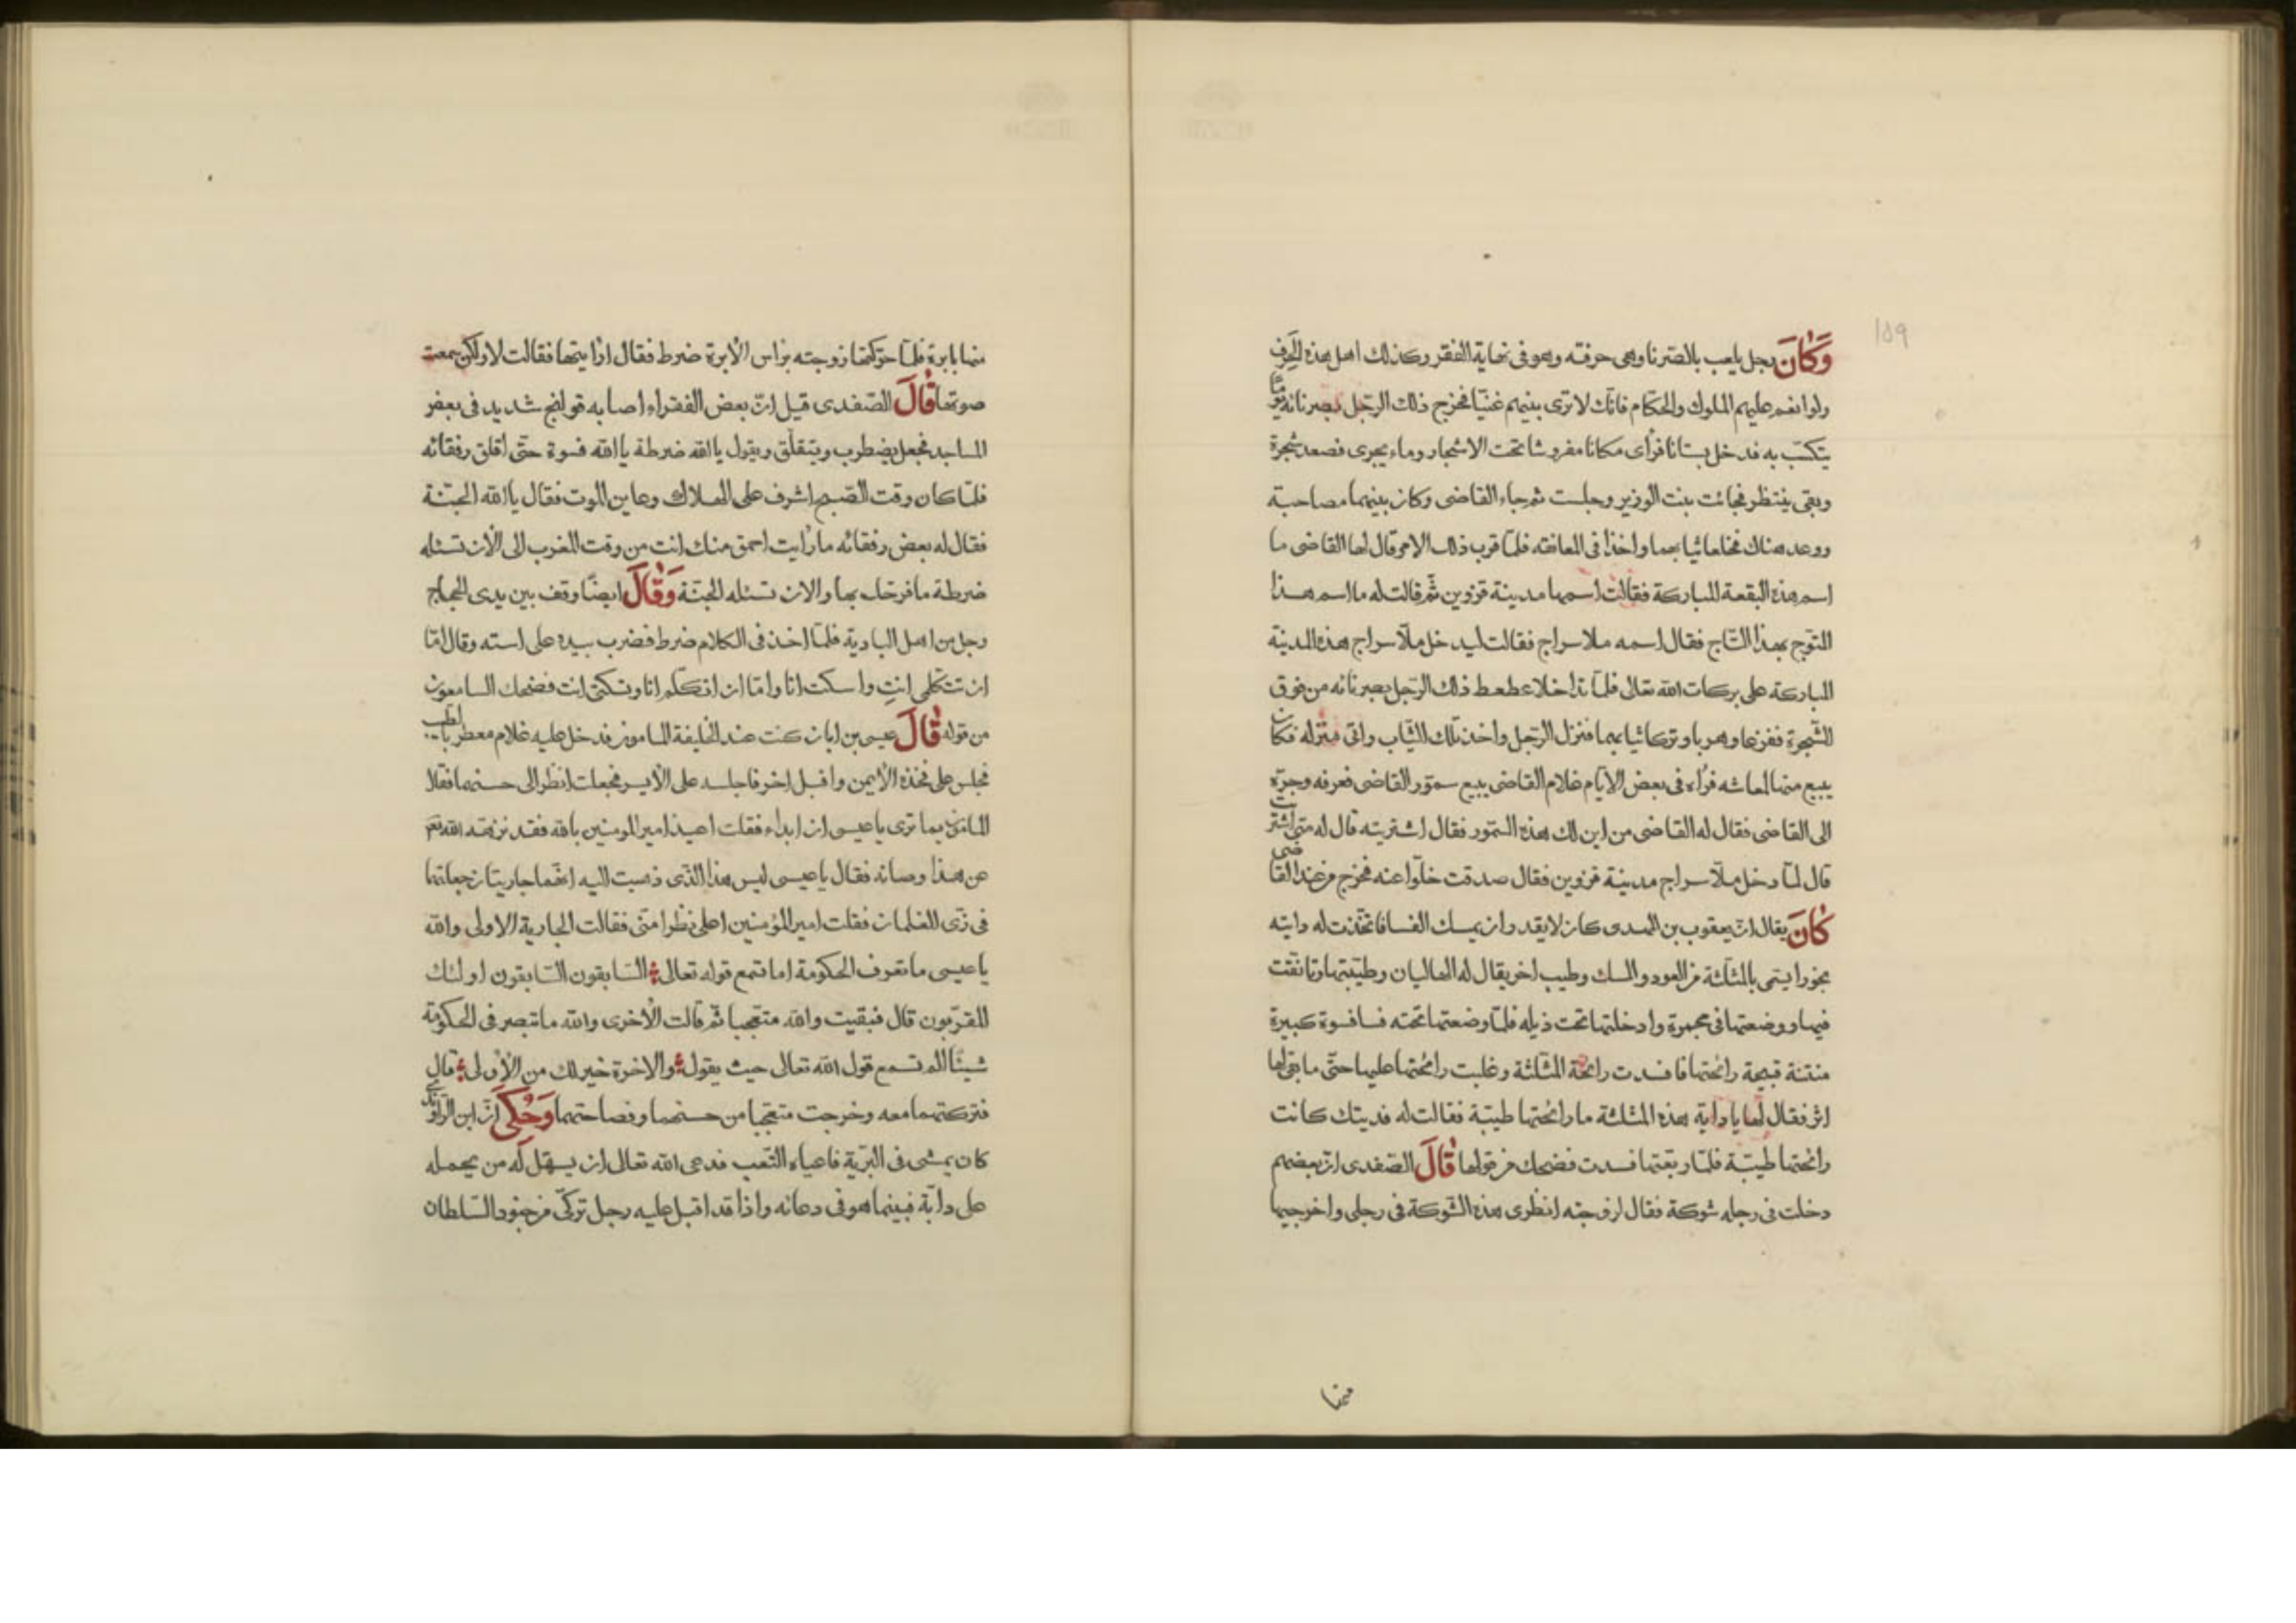 ١٥٩
وَكَانَ رجل يلعب بالصرنا وهى حرفته وهو فى نهاية الفقر وكذلك اهل هذه الحرف
ولو انعم عليهم الملوك والحكام فانّك لا ترى بينهم غنيّا فخرج ذلك الرجل بصرنائه يومًا
يتكسّب به فدخل بستانا فرأى مكانا مفروشا تحت الاشجار وماء يجرى فصعد شجرة
وبقى ينتظر فجائت بنت الوزير وجلست ثم جاء القاضى وكان بينهما مصاحبة
ووعد هناك فخلعا ثيابهما واخذا فى المعانقة فلمّا قرب ذلك الامر قال لها القاضى ما
اسم هذه البقعة المباركة فقالت اسمها مدينة قزوين ثمّ قالت له ما اسم هذا
المتوّج بهذا التّاج فقال اسمه ملا سراج فقالت ليدخل ملّا سراج هذه المدينة
المباركة على بركات الله تعالى فلمّا تداخلا عطعط ذلك الرجل بصرنائه من فوق
الشّجرة ففزعا وهربا وتركا ثيابهما فنزل الرّجل واخذ تلك الثّياب واتى منزله فكان
يبيع منها لمعاشه فرأه فى بعض الايّام غلام القاضى يبيع سمّور القاضى فعرفه وجرّه
الى القاضى فقال له القاضى من اين لك هذه السمّور فقال اشتريته قال له متى اشتريت
قال لمّا دخل ملّا سراج مدينة قزوين فقال صدقت خلّوا عنه فخرج من عند القاضى
كَانَ يقال انّ يعقوب بن المهدى كان لا يقدر ان يمسك الفسا فاتّخذت له دايته
بخورا يسمّى بالمثلّثة من العود والمسك وطيب اخر يقال له العاليان وطيّبتها وتانّقت
فيها ووضعتها فى مجمرة وادخلتها تحت ذيله فلمّا وضعتها تحته فسا فسوة كبيرة
منتنة قبيحة رائحتها فافسدت رائحة المثلّثة وغلبت رائحتها عليها حتّى ما بقى لها
اثر فقال لها يا داية هذه المثلثة ما رائحتها طيبّة فقالت له فديتك كانت
رائحتها طيّبة فلمّا ربّعتها فسدت فضحك من قولها قَالَ الصّفدى انّ بعضهم
دخلت فى رجله شوكة فقال لزوجته انظرى هذه الشّوكة فى رجلى واخرجيها
منها
منها بابرة فلمّا حرّكتها زوجته براس الأبرة ضرط فقال ارأيتها فقالت لا ولكن سمعت
صوتها قَالَ الصّفدى قيل انّ بعض الفقراء اصابه قولنج شديد فى بعض
المساجد فجعل يضطرب ويتقلّق ويقول يا الله ضرطة يا الله فسوة حتّى اقلق رفقائه
فلمّا كان وقت الصّبح اشرف على الهلاك وعاين الموت فقال يا الله الجنّة
فقال له بعض رفقائه ما رأيت احمق منك انت من وقت المغرب الى الأن تسئله
ضرطة ما فرحك بها والان تسئله الجنّة وَقَالَ ايضًا وقف بين يدى الحجاج
رجل من اهل البادية فلمّا اخذ فى الكلام ضرط فضرب بيده على استه وقال امّا
ان تتكلّمى انتِ واسكت انا وامّا ان اتكلّم انا وتسكتى انت فضحك السامعون
من قوله قَالَ عيسى بن ابان كنت عند الخليفة المامون فدخل عليه غلام معطر بالطيب
فجلس على فخذه الأيمن واقبل اخر فاجلسه على الأيسر فجعلت انظر الى حسنهما فقال
المامون بما ترى يا عيسى ان ابداء فقلت اعيذ امير المومنين بالله فقد نزهه الله تعم
عن هذا وصانه فقال يا عيسى ليس هذا الّذى ذهبت اليه انّهما جاريتان جعلتهما
فى زىّ الغلمان فقلت امير المؤمنين اعلى نظرا منّى فقالت الجارية الاولى والله
يا عيسى ما تعرف الحكومة اما تسمع قوله تعالى السّابقون السّابقون اولئك
المقرّبون قال فبقيت والله متعجبا ثمّ قالت الأخرى والله ما تبصر فى الحكومة
شيئًا الم تسمع قول الله تعالى حيث يقول والاخرة خير لك من الأولى قال
فتركتهما معه وخرجت متعجّبا من حسنهما وفصاحتهما وَحُكِىَ انّ ابن الرّاوندى
كان يمشى فى البرّية فاعياه التّعب فدعى الله تعالى ان يسهّل له من يحمله
على دابّة فبينما هو فى دعائه واذا قد اقبل عليه رجل تركىّ من جنود السّلطان